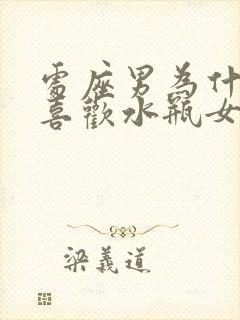 雪座男為什
喜歡水瓶女
梁義道